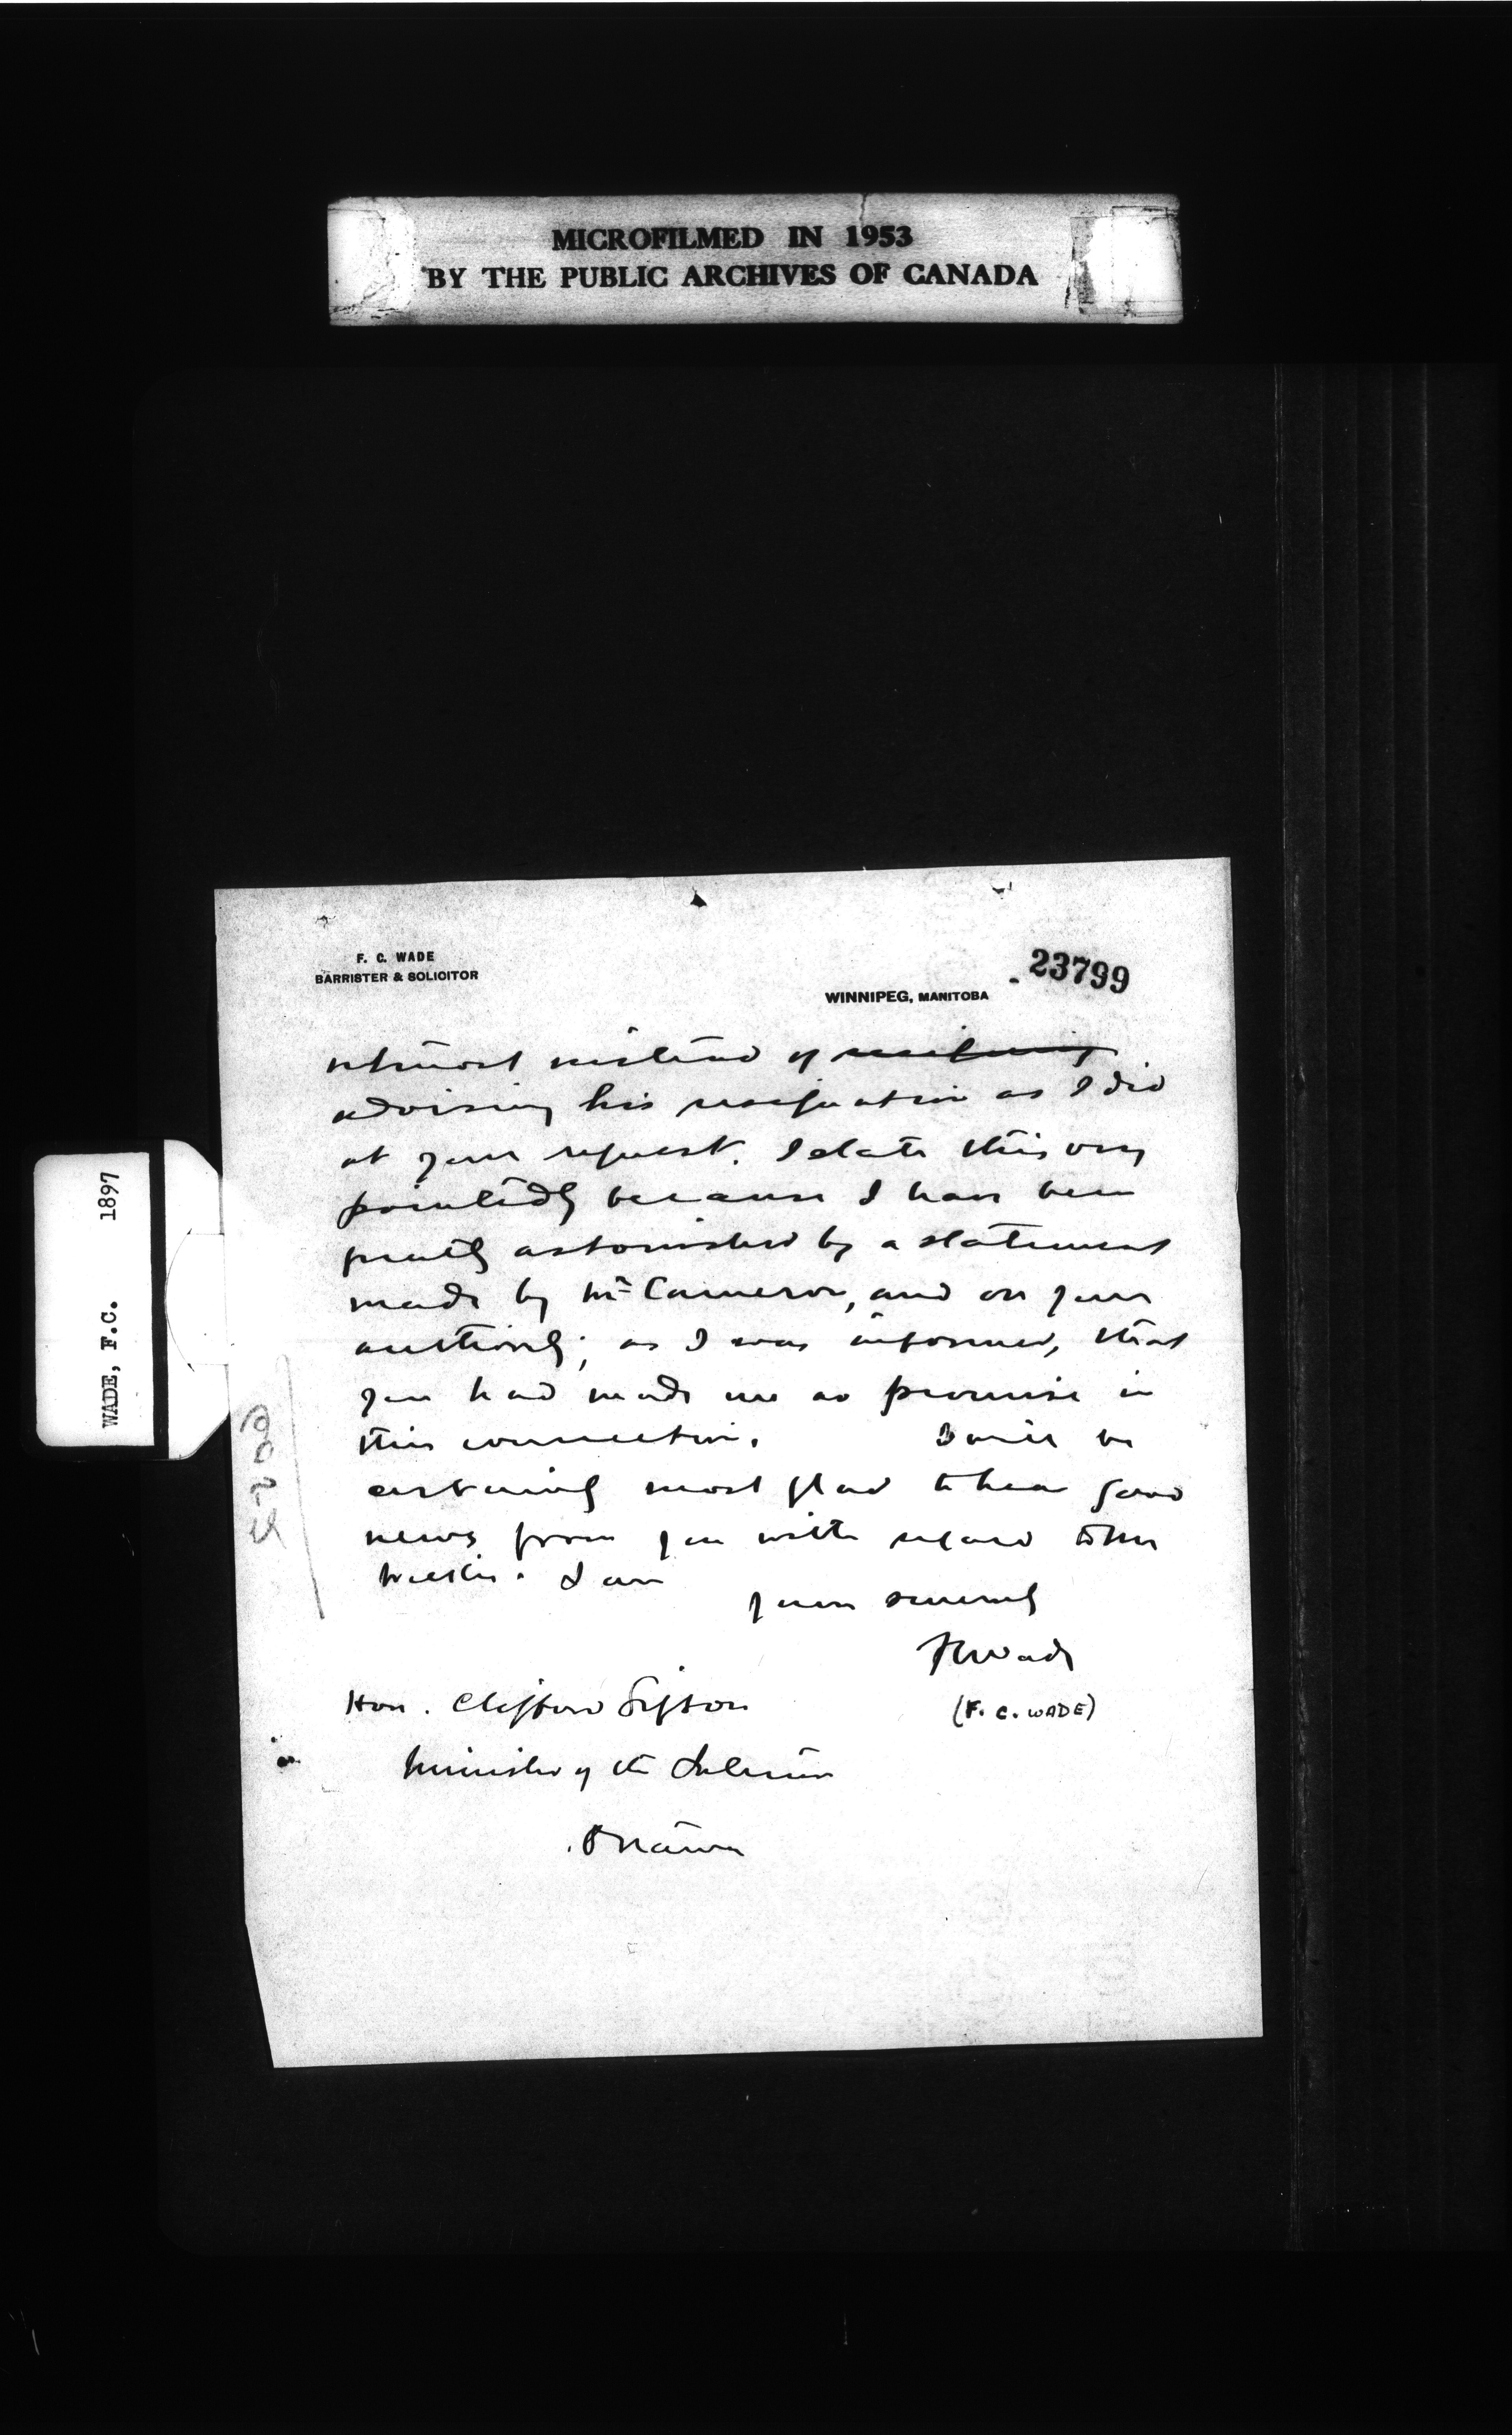 MICROFILMED IN 1953
BY THE PUBLIC ARCHIVES OF CANADA
WADE, F.C. 1897
F. C. WADE
BARRISTER & SOLICITOR
23799
WINNIPEG, MANITOBA
utmost instead of
advising his resignation as I did
at your request. I state this very
pointedly because I have been
greatly astonished by a statement
made by Mr Cameron, and on your
authority, as I was informed, that
you had made me no promise in
this connection. I will be
certainly most glad to hear good
news from you with regard to this
matter. I am
Yours sincerely
FCWade
(F. C. WADE)
Hon. Clifford Sifton
Minister of the Interior
Ottawa